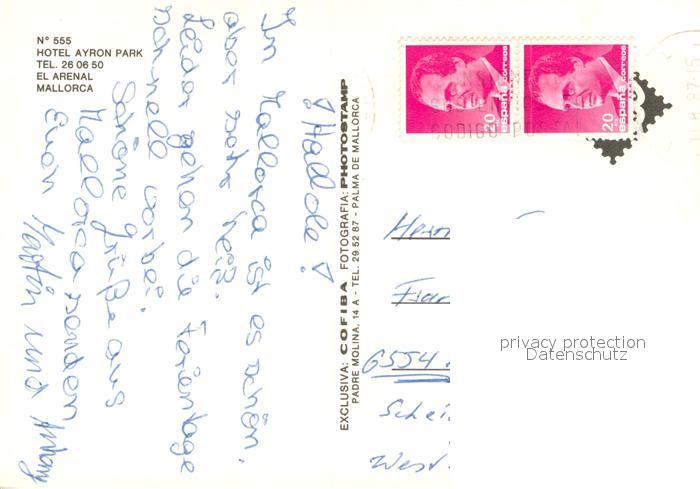 N° 555
HOTEL AYRON PARK
TEL. 26 06 50
EL ARENAL
MALLORCA
! Hallole !
In Mallorca ist es schön.
aber sehr heiß.
Leider gehen die Ferientage
schnell vorbei.
Schöne Grüße aus
Mallorca senden
Euch Martin und
EXCLUSIVA: COFIBA FOTOGRAFIA: PHOTOSTAMP
PADRE MOLINA, 14 A - TEL. 29 52 87 - PALMA DE MALLORCA
20 españa correos
20 españa correos
CODIGO POSTAL
Herrn
6554
West
privacy protection
Datenschutz